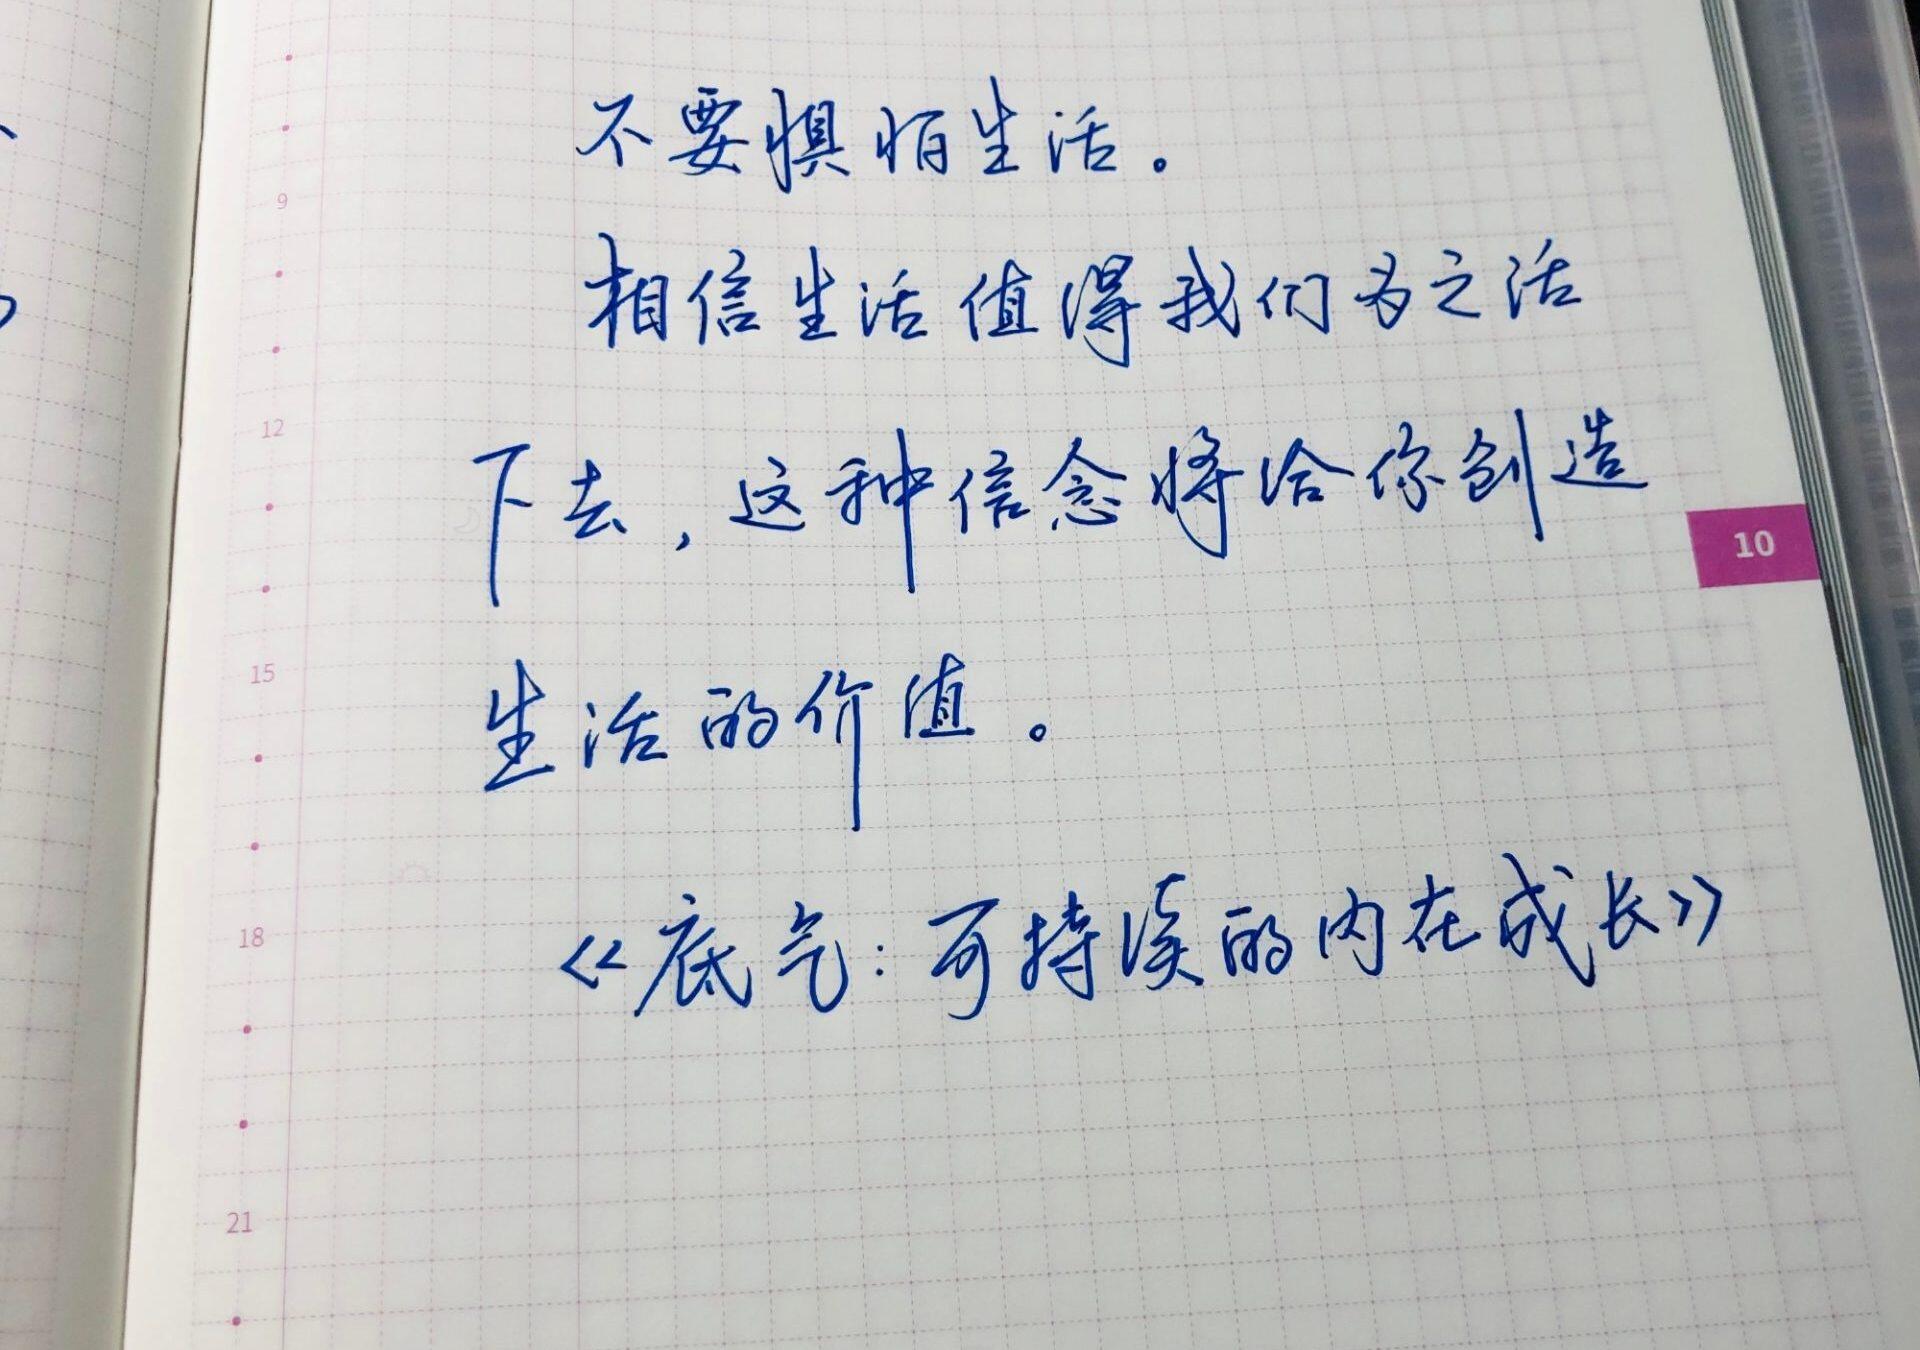 不要惧怕生活。
9
相信生活值得我们为之活
12
下去，这种信念将给你创造
10
15
生活的价值。
18
《底气：可持续的内在成长》
21